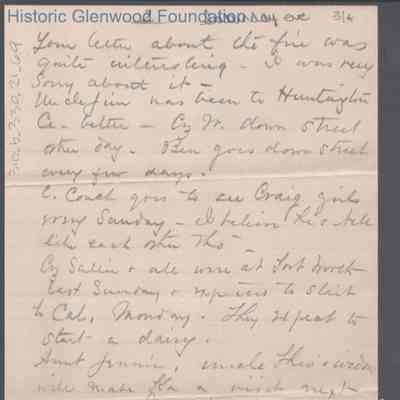 Historic Glenwood Foundation
3/4
Your letter about the fire was
quite interesting - I was very
Sorry about it -
Uncle Jim has been to Huntington
better - down street
other day. Ben goes down street
every few days.
C. Couch goes to see Craig girls
every Sunday - I believe
like each other Tho -
Cy Sallie & all were at Fort Worth
Last Sunday & expected to start
to Cal, Monday. They expect to
start a dairy.
Aunt Jennie, uncle
will make Fla a visit next